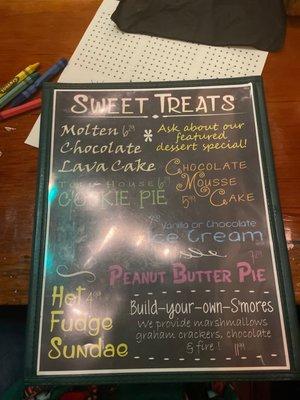 SWEET TREATS
Molten 6.99
Chocolate
Lava Cake
*
Ask about our
featured
dessert special!
Toll House
COOKIE PIE
CHOCOLATE
MOUSSE
CAKE
Vanilla or Chocolate
Ice Cream
PEANUT BUTTER PIE
Hot
Fudge
Sundae
Build-your-own-S'mores
We provide marshmallows
graham crackers, chocolate
& fire!